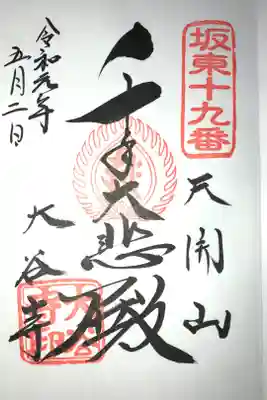 坂東十九番
天開山
千手大悲殿
大谷寺
令和元年
五月二日